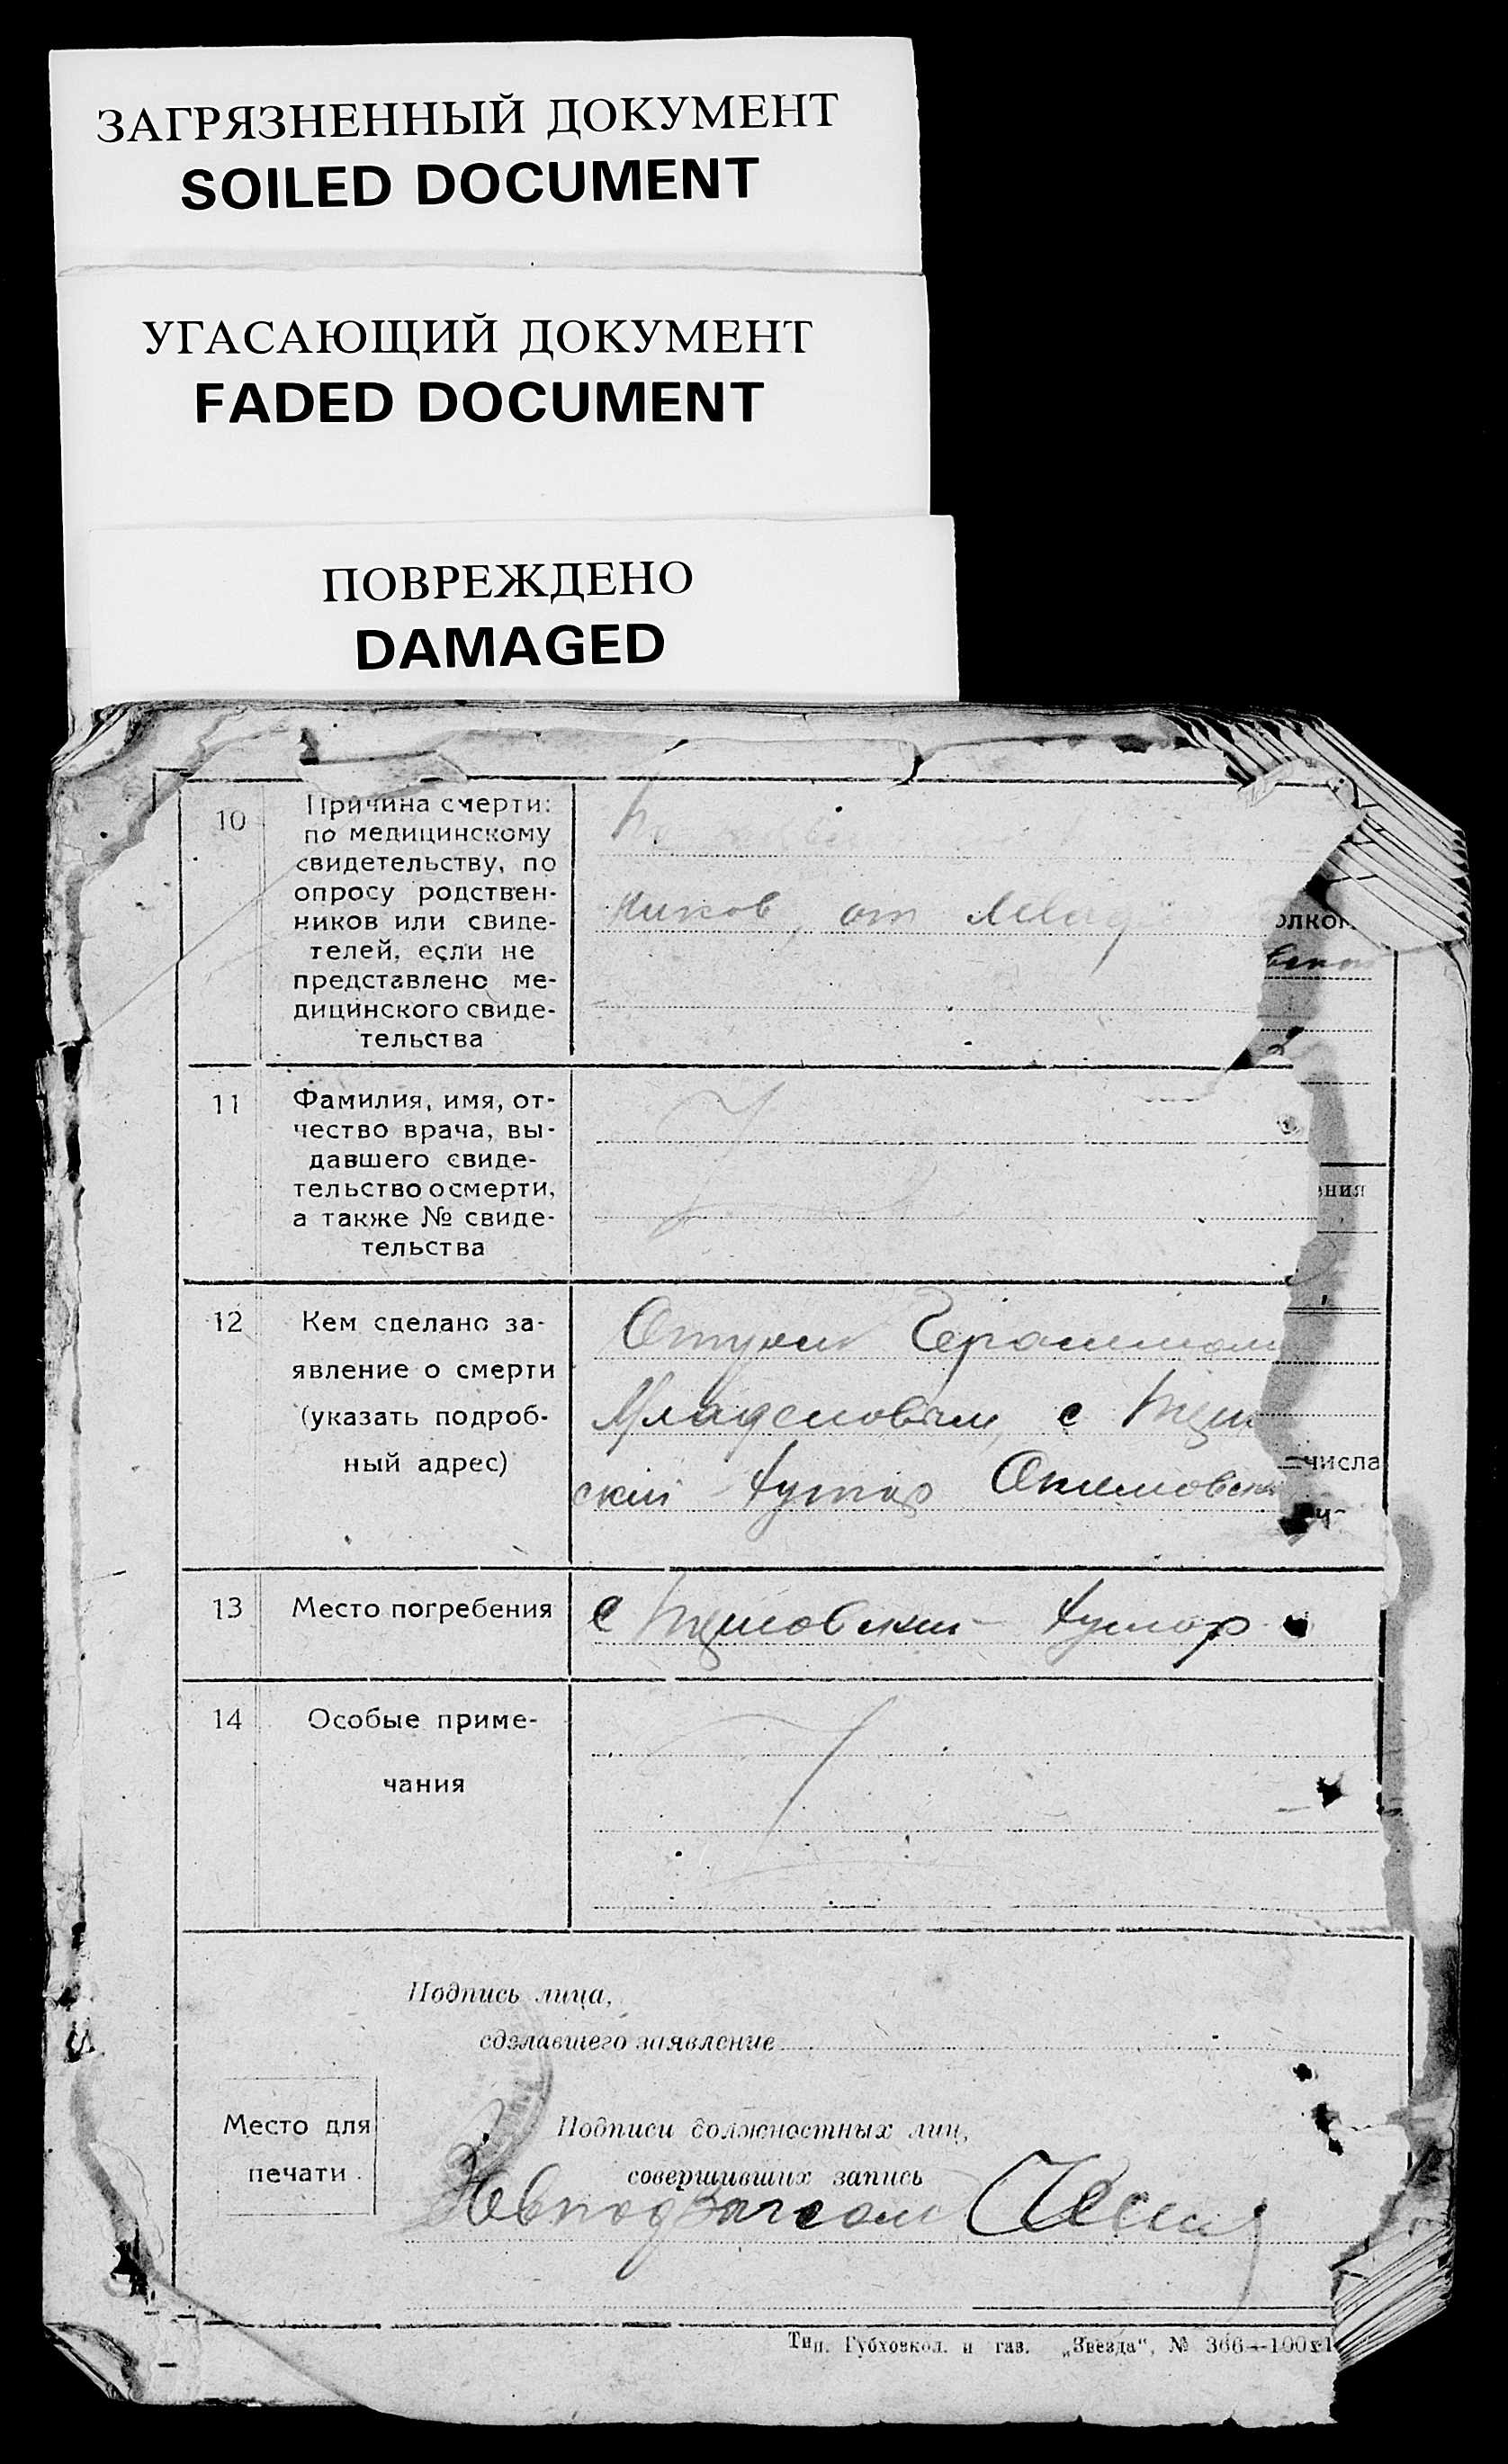 ЗАГРЯЗНЕННЫЙ ДОКУМЕНТ
SOILED DOCUMENT
УГАСАЮЩИЙ ДОКУМЕНТ
FADED DOCUMENT
ПОВРЕЖДЕНО
DAMAGED
10
Причина смерти:
по медицинскому
свидетельству, по
опросу родствен-
ников или свиде-
телей, если не
представлено ме-
дицинского свиде-
тельства
ников, от
11
Фамилия, имя, от-
чество врача, вы-
давшего свиде-
тельство о смерти,
а также № свиде-
тельства
ения
12
Кем сделано за-
явление о смерти
(указать подроб-
ный адрес)
Отцом Герасимом
Младеновым, с
ский хутор
числа
13
Место погребения
с хутор
14
Особые приме-
чания
Подпись лица,
сделавшего заявление
Место для
печати
Подписи должностных лиц,
совершивших запись
Тип. Губховкол. и газ. „Звезда“, № 366—100х1